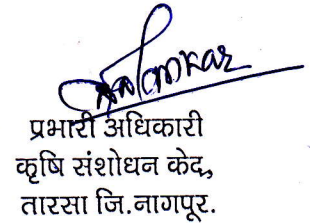 प्रभारी अधिकारी
कृषि संशोधन केद,
तारसा जि.नागपूर.